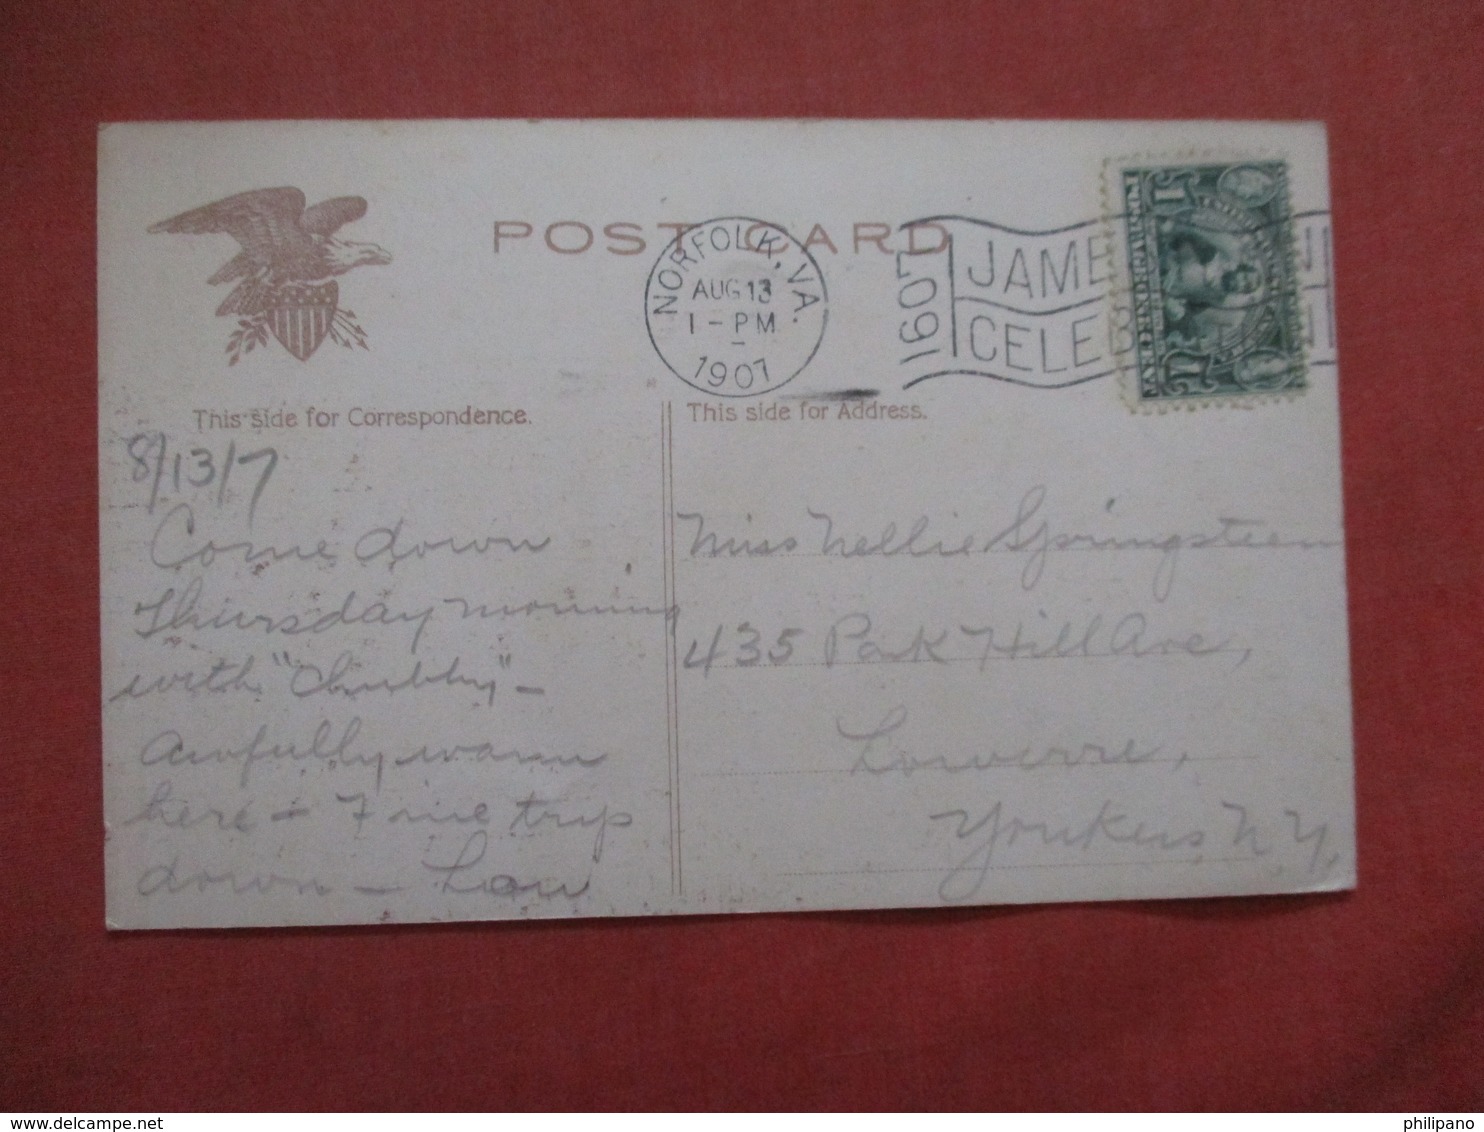 POST CARD
NORFOLK, VA.
AUG 13
1-PM
1907
1907
JAME
CELE
This side for Correspondence.
This side for Address.
8/13/7
Come down
Thursday morning
with "Chubby" -
Awfully warm
here - Fine trip
down - Lou
Miss Nellie Springsteen
435 Park Hill Ave,
Lowerre,
Yonkers, N.Y.
delcampe.net
philipano